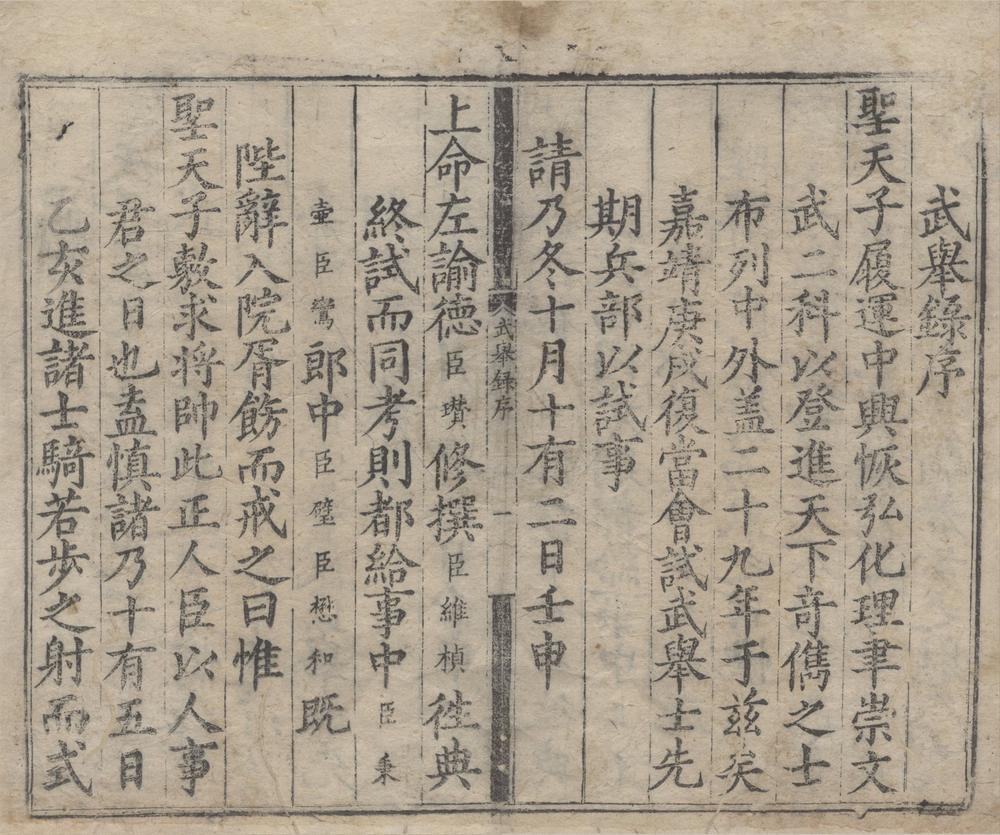 武舉錄序
聖天子履運中興恢弘化理聿崇文
武二科以登進天下奇儁之士
布列中外盖二十九年于兹矣
嘉靖庚戌復當會試武舉士先
期兵部以試事
請乃冬十月十有二日壬申
武舉録序 一
上命左諭德臣瓚修撰臣維楨徃典
終試而同考則都給事中臣秉
壷臣鸞郎中臣璧臣懋和既
陛辭入院胥飭而戒之曰惟
聖天子敷求将帥此正人臣以人事
君之日也盍慎諸乃十有五日
乙亥進諸士騎若步之射而式